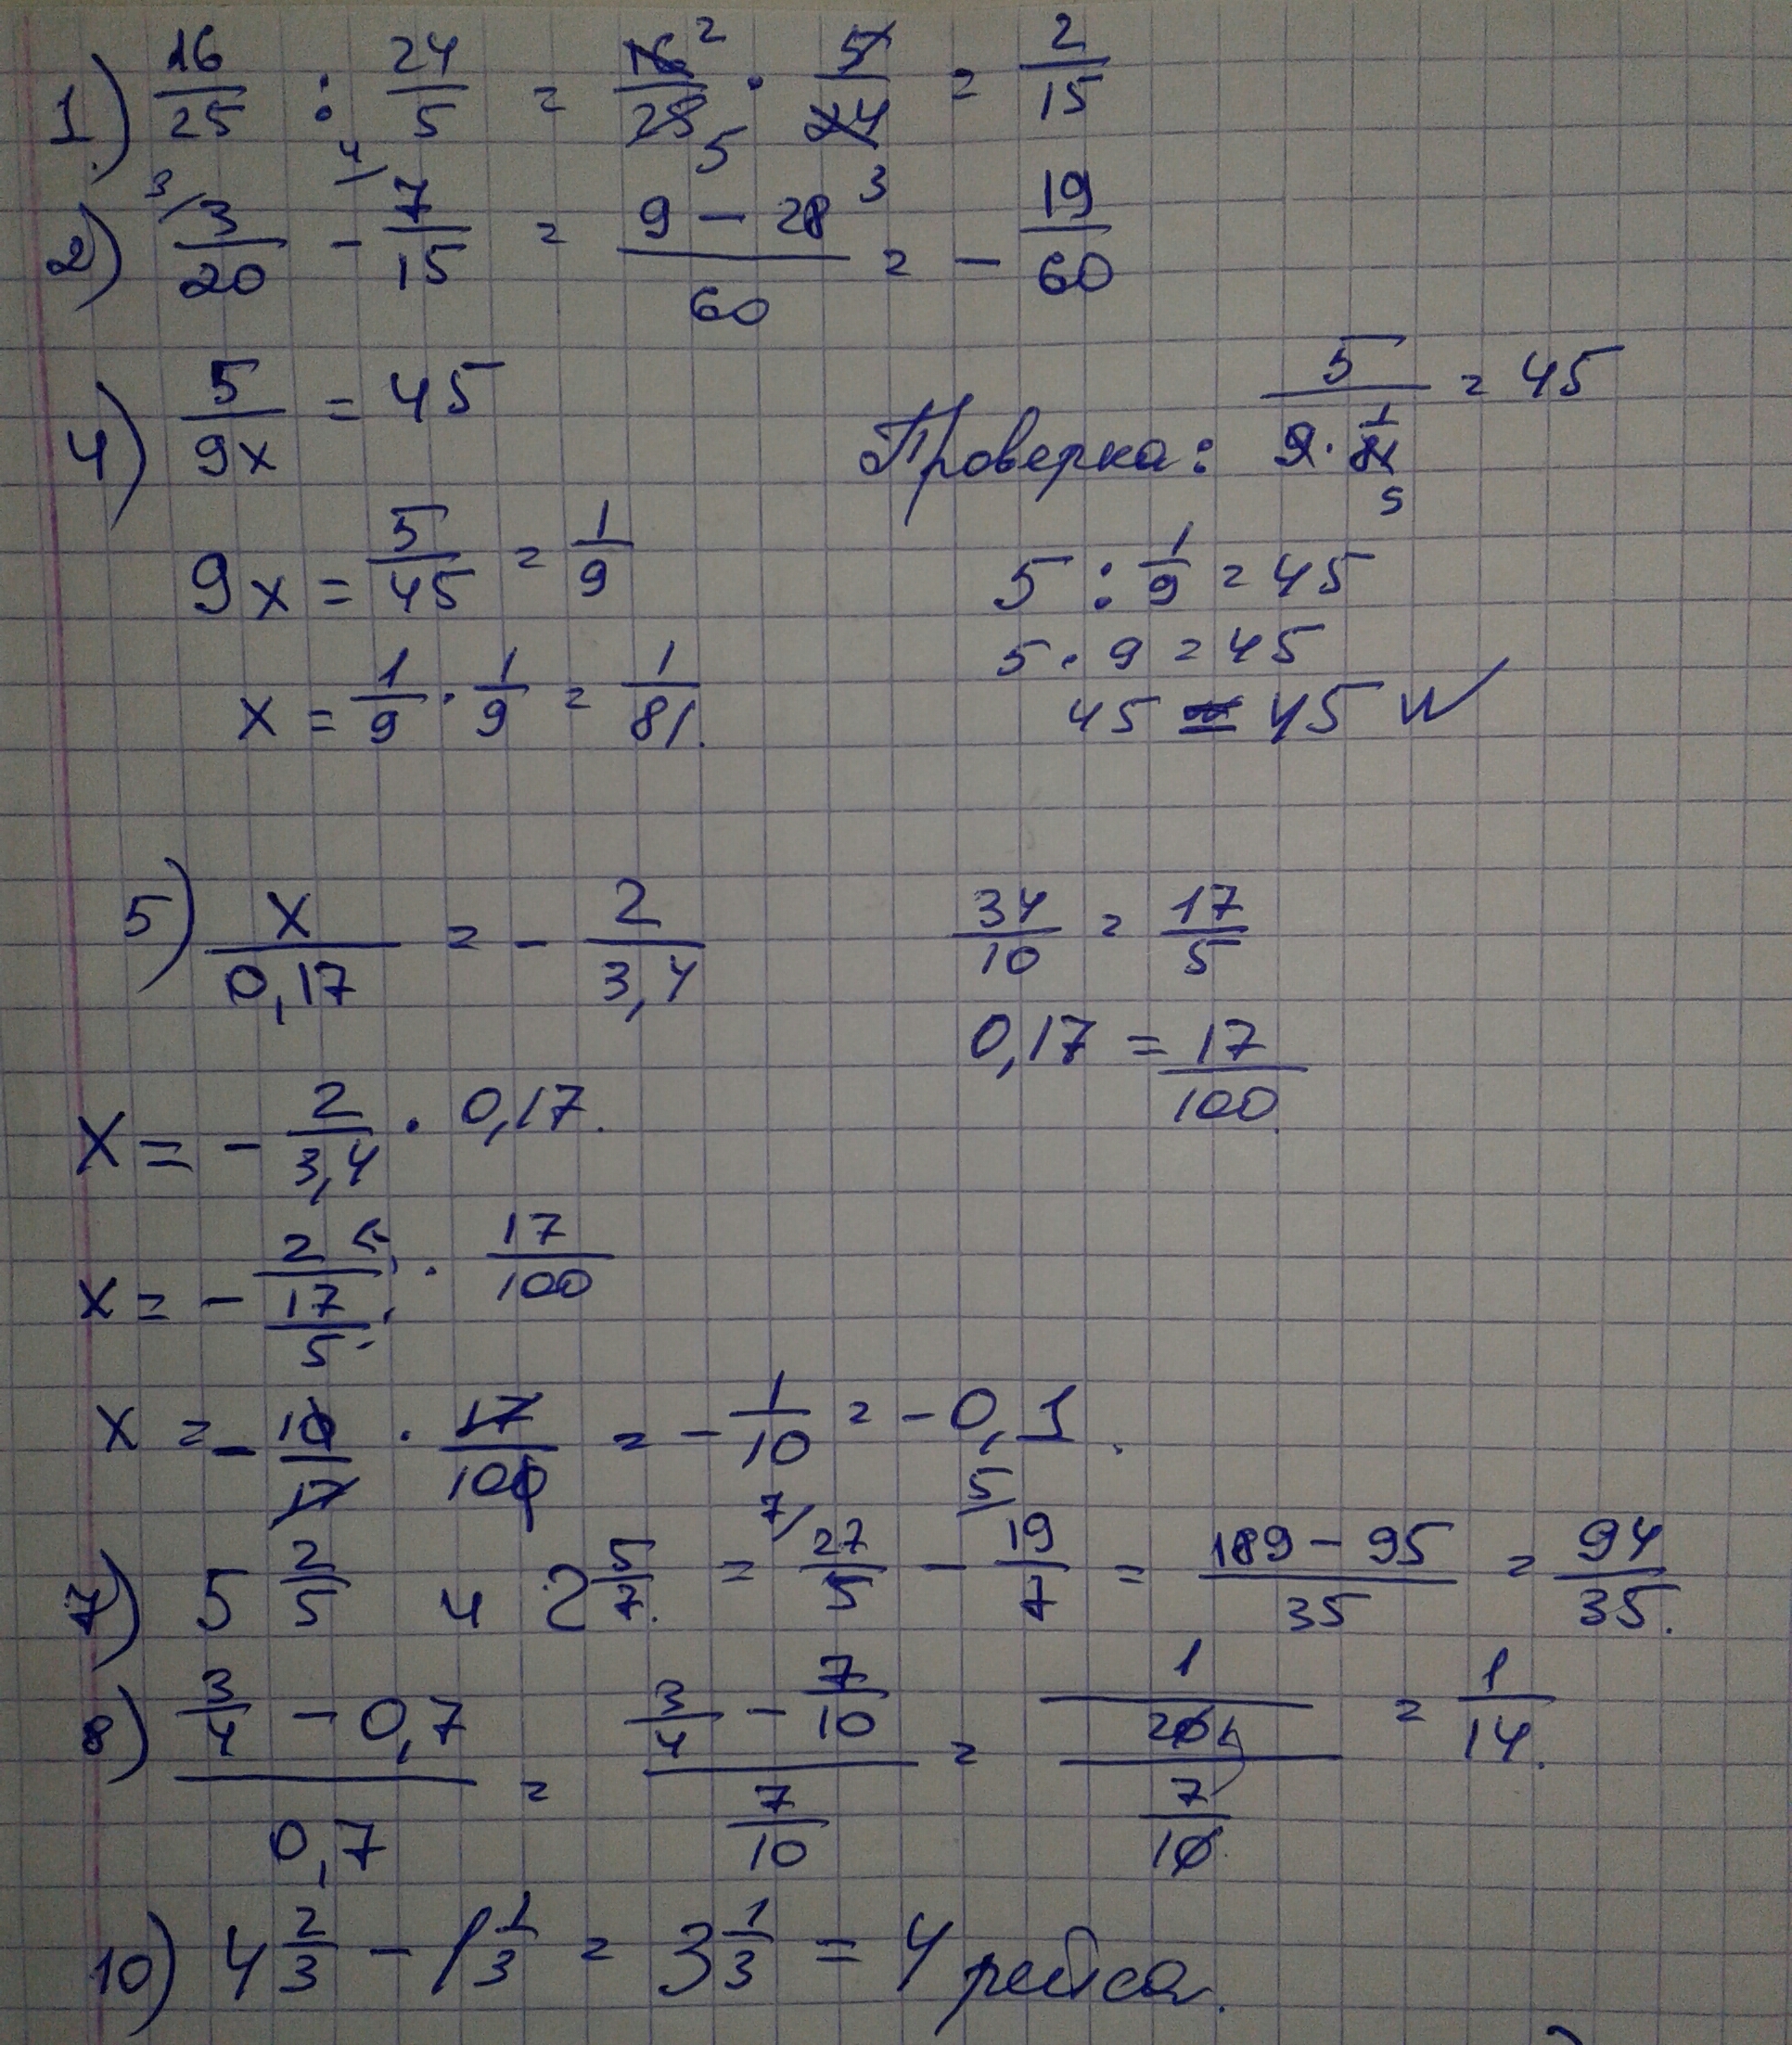 1) 16/25 : 24/5 = 16 2/25 5 · 5/24 3 = 2/15
2) 3/ 3/20 - 4/ 7/15 = (9 - 28)/60 = - 19/60
4) 5/9x = 45
Проверка: 5/(9 · 1/81) = 45
9
9x = 5/45 = 1/9
5 : 1/9 = 45
5 · 9 = 45
x = 1/9 · 1/9 = 1/81.
45 = 45 w
5) x/0,17 = - 2/3,4
34/10 = 17/5
0,17 = 17/100
x = - 2/3,4 · 0,17.
x = - 2/(17/5) · 17/100
x = - 10/17 · 17/100 = - 1/10 = - 0,1.
7) 5 2/5 и 2 5/7. = 7/ 27/5 - 5/ 19/7 = (189 - 95)/35 = 94/35.
8) (3/4 - 0,7)/0,7 = (3/4 - 7/10)/(7/10) = (1/20)/(7/10) = 1/14.
10) 4 2/3 - 1 1/3 = 3 1/3 = 4 рейса.